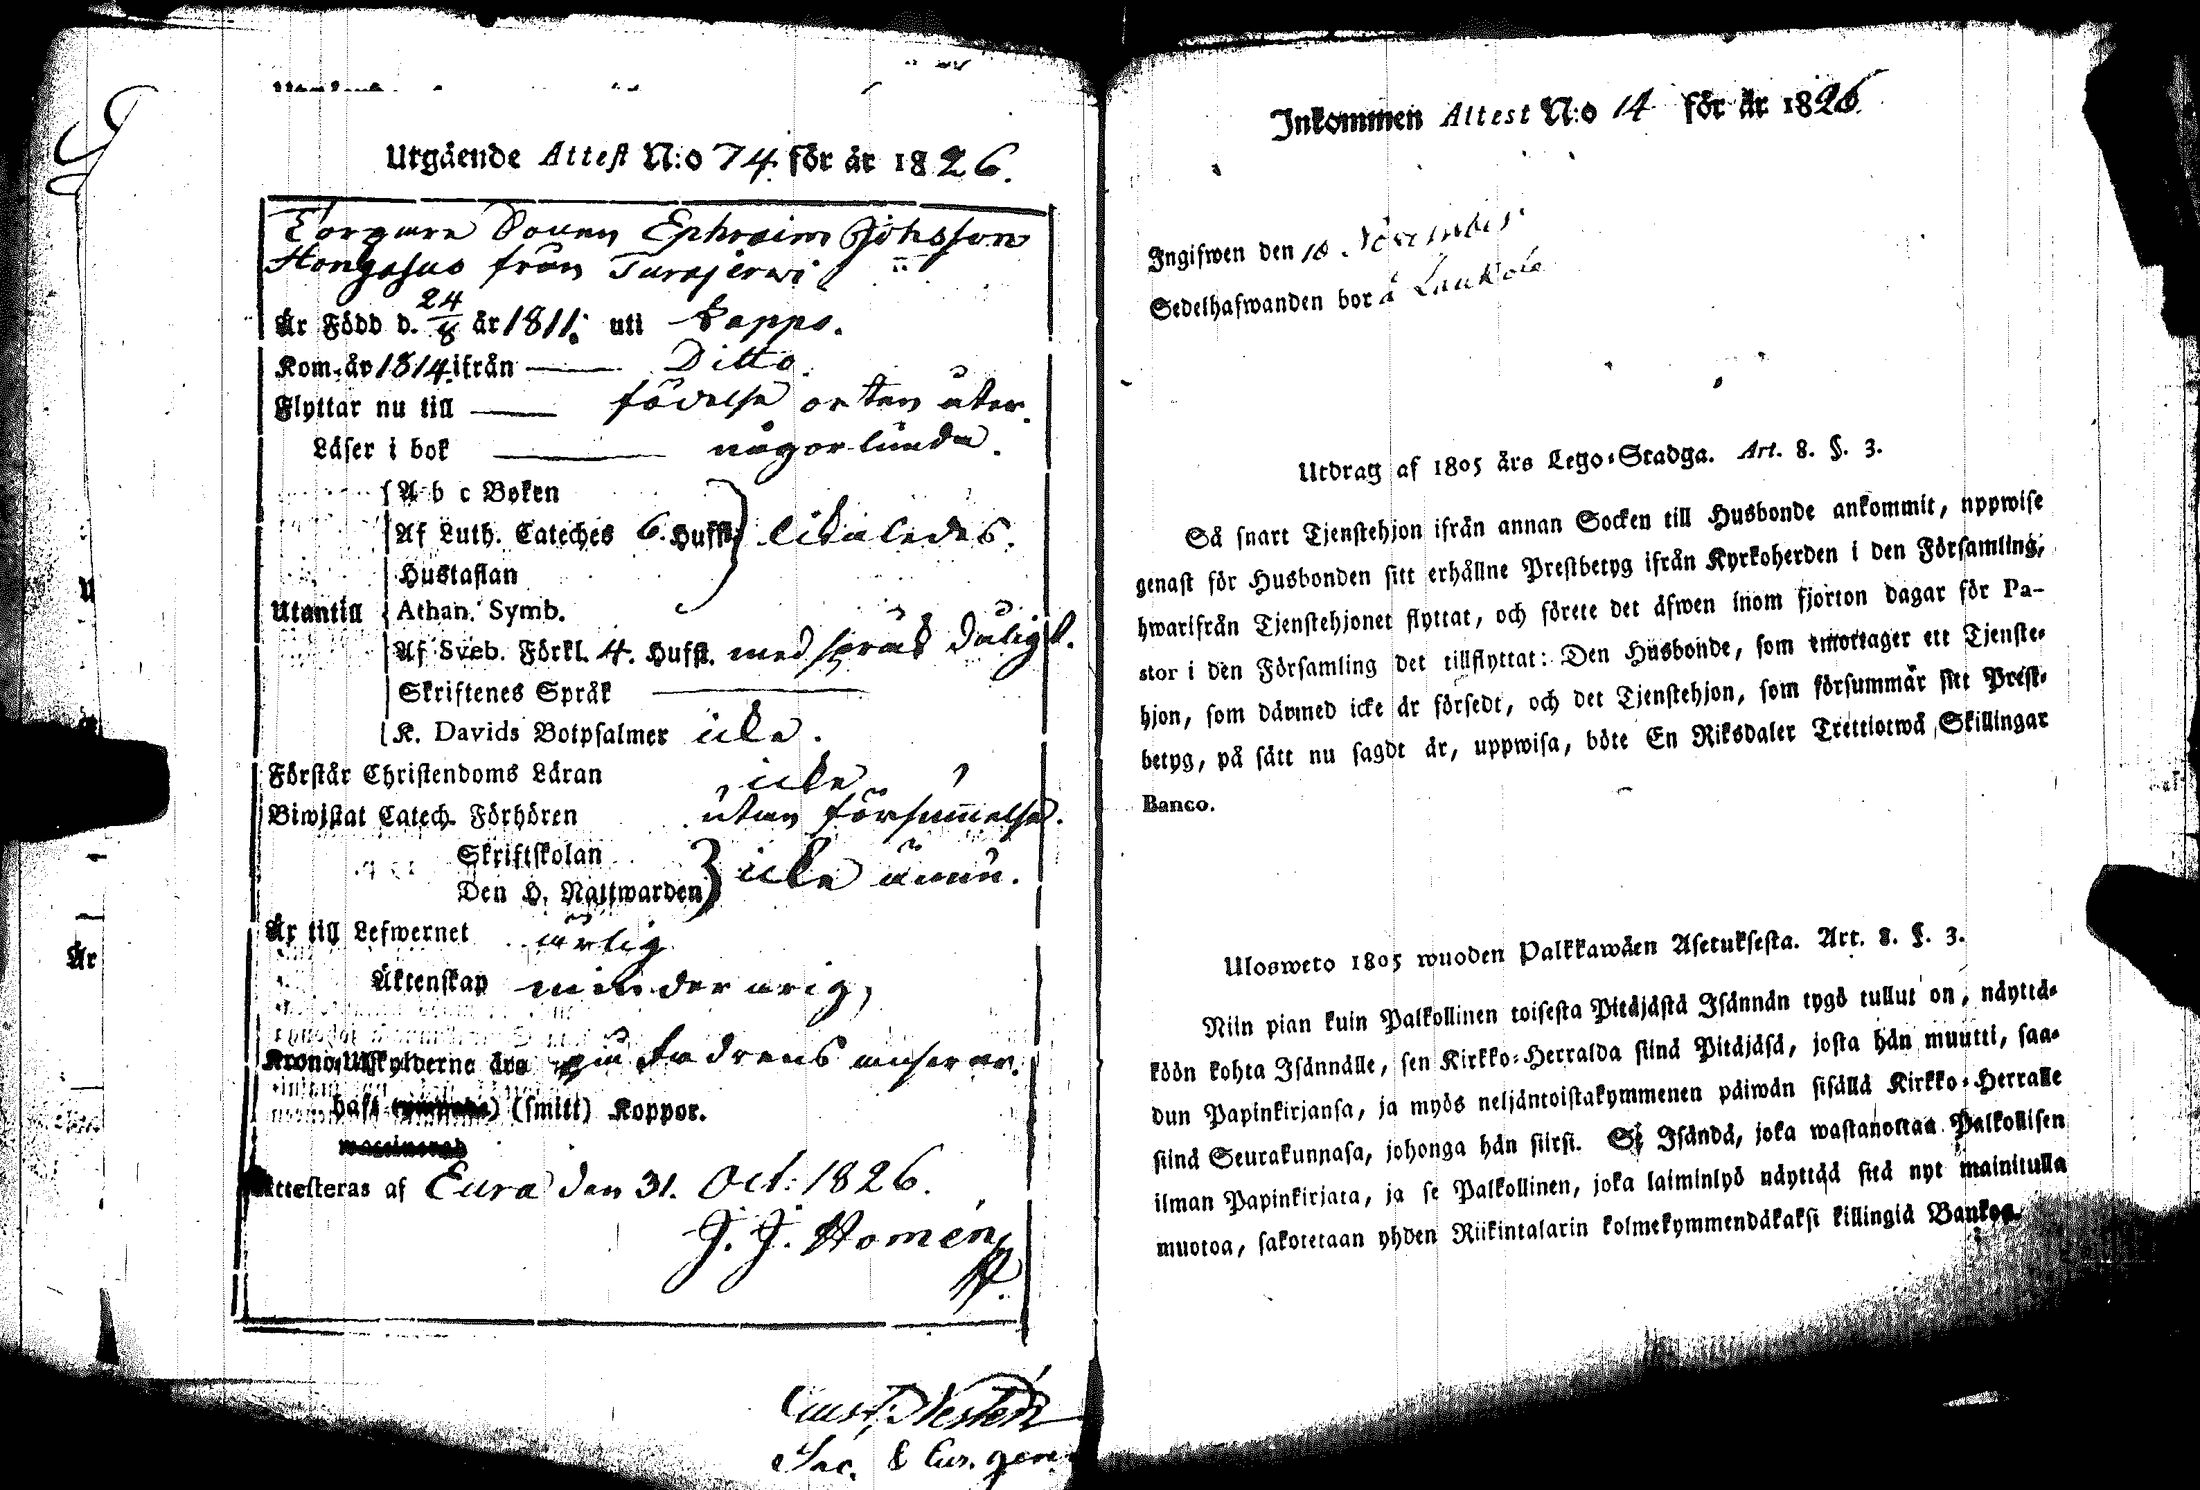 Utgående Attest N:o 74 för år 1826.
Torpare Sonen Ephraim Johsson
Hongasuo från Turajerwi
Är Född d. 24/8 år 1811. uti Kappo.
Kom år 1814 ifrån — Ditto.
Flyttar nu till — födelse orten åter.
Läser i bok — någorlunda.
A b c Boken
Af Luth. Cateches 6. Hufst. likaledes.
Hustaflan
Utantill Athan. Symb.
Af Sveb. Förkl. 4. Hufst. med språk dåligt.
Skriftenes Språk —
K. Davids Botpsalmer icke.
Förstår Christendoms Läran icke
Biwistat Catech. Förhören utan försummelse.
Skriftskolan
Den H. Nattwarden icke ännu.
Är till Lefwernet ärlig
Äktenskap minderårig,
Krono Utskylderne äro på fadrens answar.
haft (smitt) Koppor.
Attesteras af Eura den 31. Oct: 1826.
J. J. Homén
Inkommen Attest N:o 14 för år 1826
Ingifwen den 18 November
Sedelhafwanden bor å
Utdrag af 1805 års Lego-Stadga. Art. 8. §. 3.
Så snart Tjenstehjon ifrån annan Socken till Husbonde ankommit, uppwise
genast för Husbonden sitt erhållne Prestbetyg ifrån Kyrkoherden i den Församling,
hwarifrån Tjenstehjonet flyttat, och förete det äfwen inom fjorton dagar för Pa-
stor i den Församling det tillflyttat: Den Husbonde, som emottager ett Tjenste-
hjon, som därmed icke är försedt, och det Tjenstehjon, som försummar sitt Prest-
betyg, på sätt nu sagdt är, uppwisa, böte En Riksdaler Trettiotwå Skillingar
Banco.
Ulosweto 1805 wuoden Palkkawäen Asetuksesta. Art. 8. §. 3.
Niin pian kuin Palkollinen toisesta Pitäjästä Isännän tygö tullut on, näyttä-
köön kohta Isännälle, sen Kirkko-Herralda siinä Pitäjäsä, josta hän muutti, saa-
dun Papinkirjansa, ja myös neljäntoistakymmenen päiwän sisällä Kirkko-Herralle
siinä Seurakunnasa, johonga hän siirsi. Se Isändä, joka wastanottaa Palkollisen
ilman Papinkirjata, ja se Palkollinen, joka laiminlyö näyttää sitä nyt mainitulla
muotoa, sakotetaan yhden Riikintalarin kolmekymmendäkaksi killingiä Bankoa.